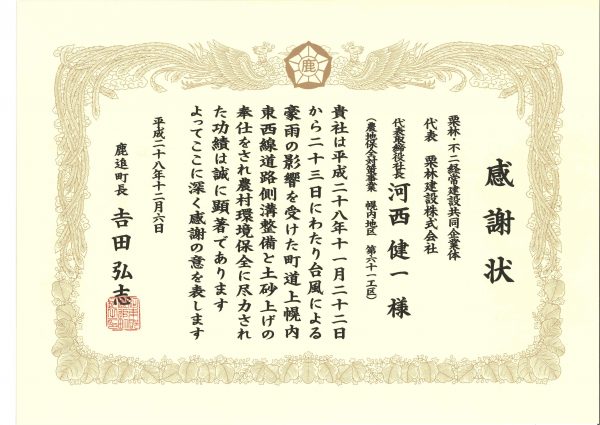 鹿
感謝状
栗林・不二経常建設共同企業体
代表 栗林建設株式会社
代表取締役社長 河西健一様
(農地保全対策事業 幌内地区 第六十一工区)
貴社は平成二十八年十一月二十二日
から二十三日にわたり台風による
豪雨の影響を受けた町道上幌内
東西線道路側溝整備と土砂上げの
奉仕をされ農村環境保全に尽力され
た功績は誠に顕著であります
よってここに深く感謝の意を表します
平成二十八年十二月六日
鹿追町長 吉田弘志